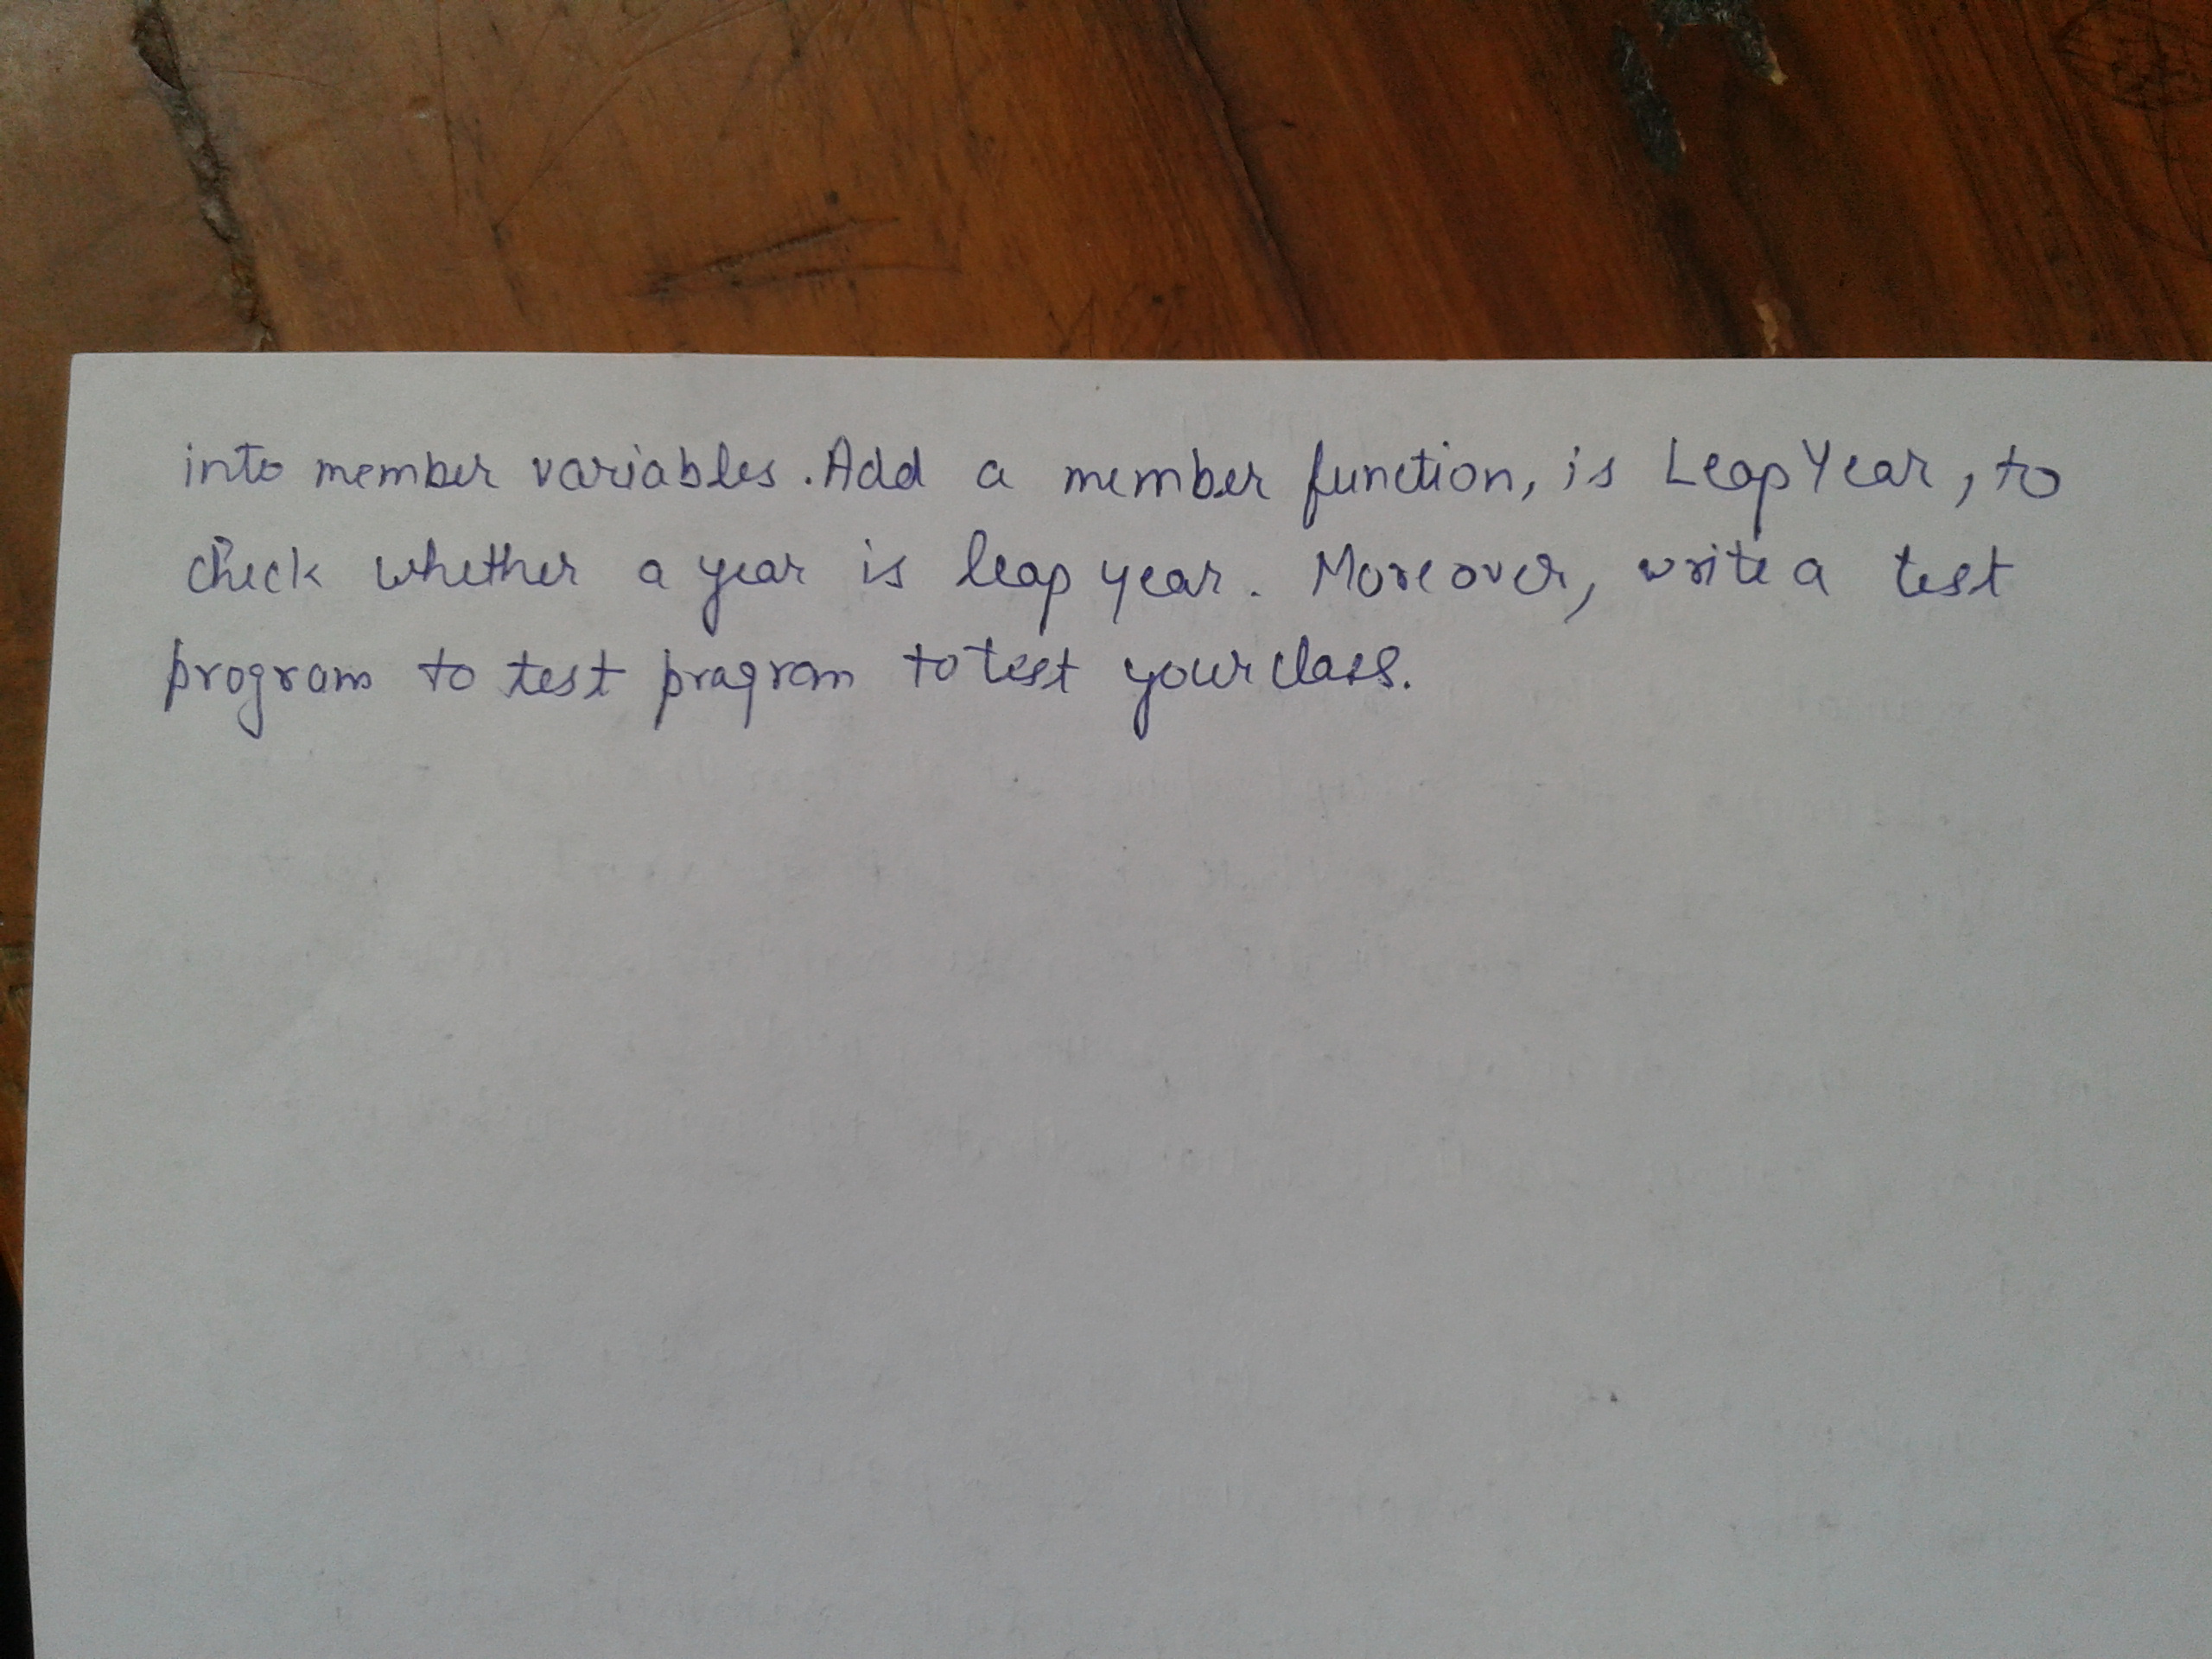 into member variables. Add a member function, is Leap Year, to
check whether a year is leap year. Moreover, write a test
program to test pragram to test your class.